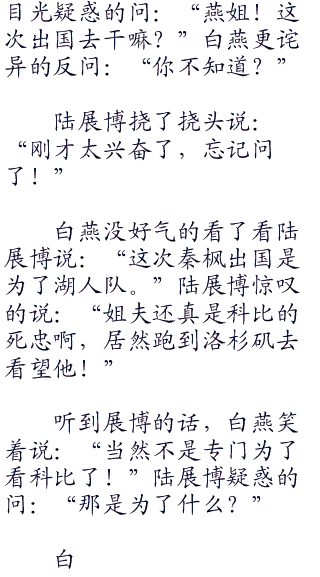 目光疑惑的问：“燕姐！这
次出国去干嘛？”白燕更诧
异的反问：“你不知道？”
陆展博挠了挠头说：
“刚才太兴奋了，忘记问
了！”
白燕没好气的看了看陆
展博说：“这次秦枫出国是
为了湖人队。”陆展博惊叹
的说：“姐夫还真是科比的
死忠啊，居然跑到洛杉矶去
看望他！”
听到展博的话，白燕笑
着说：“当然不是专门为了
看科比了！”陆展博疑惑的
问：“那是为了什么？”
白